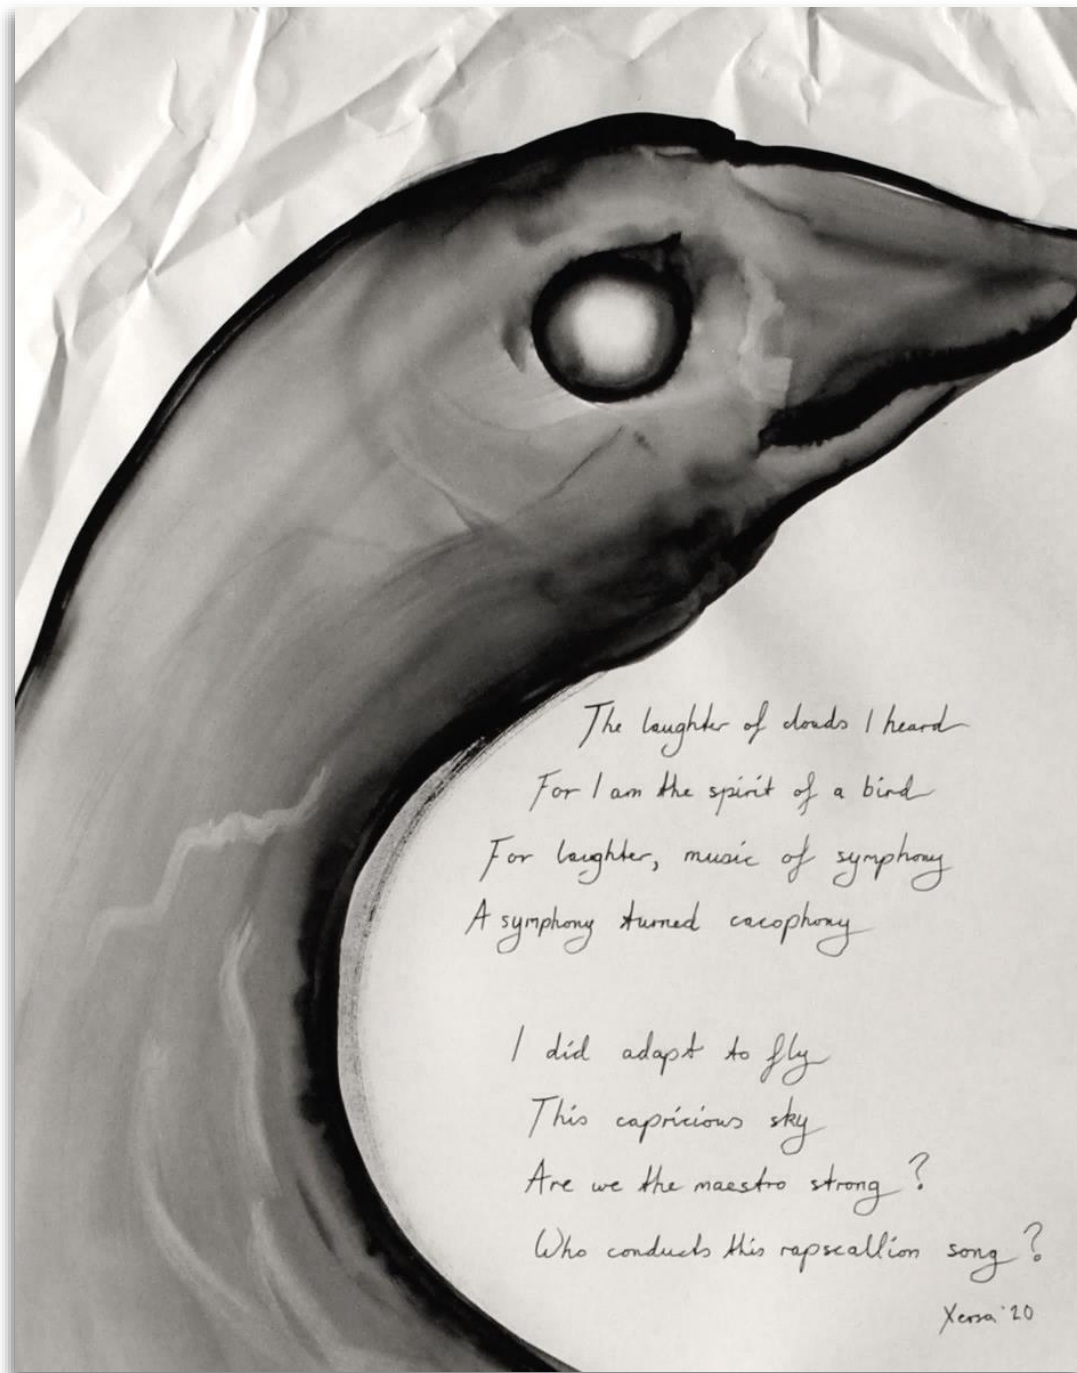 The laughter of clouds I heard
For I am the spirit of a bird
For laughter, music of symphony
A symphony turned cacophony
I did adapt to fly
This capricious sky
Are we the maestro strong ?
Who conducts this rapscallion song ?
Xersa '20